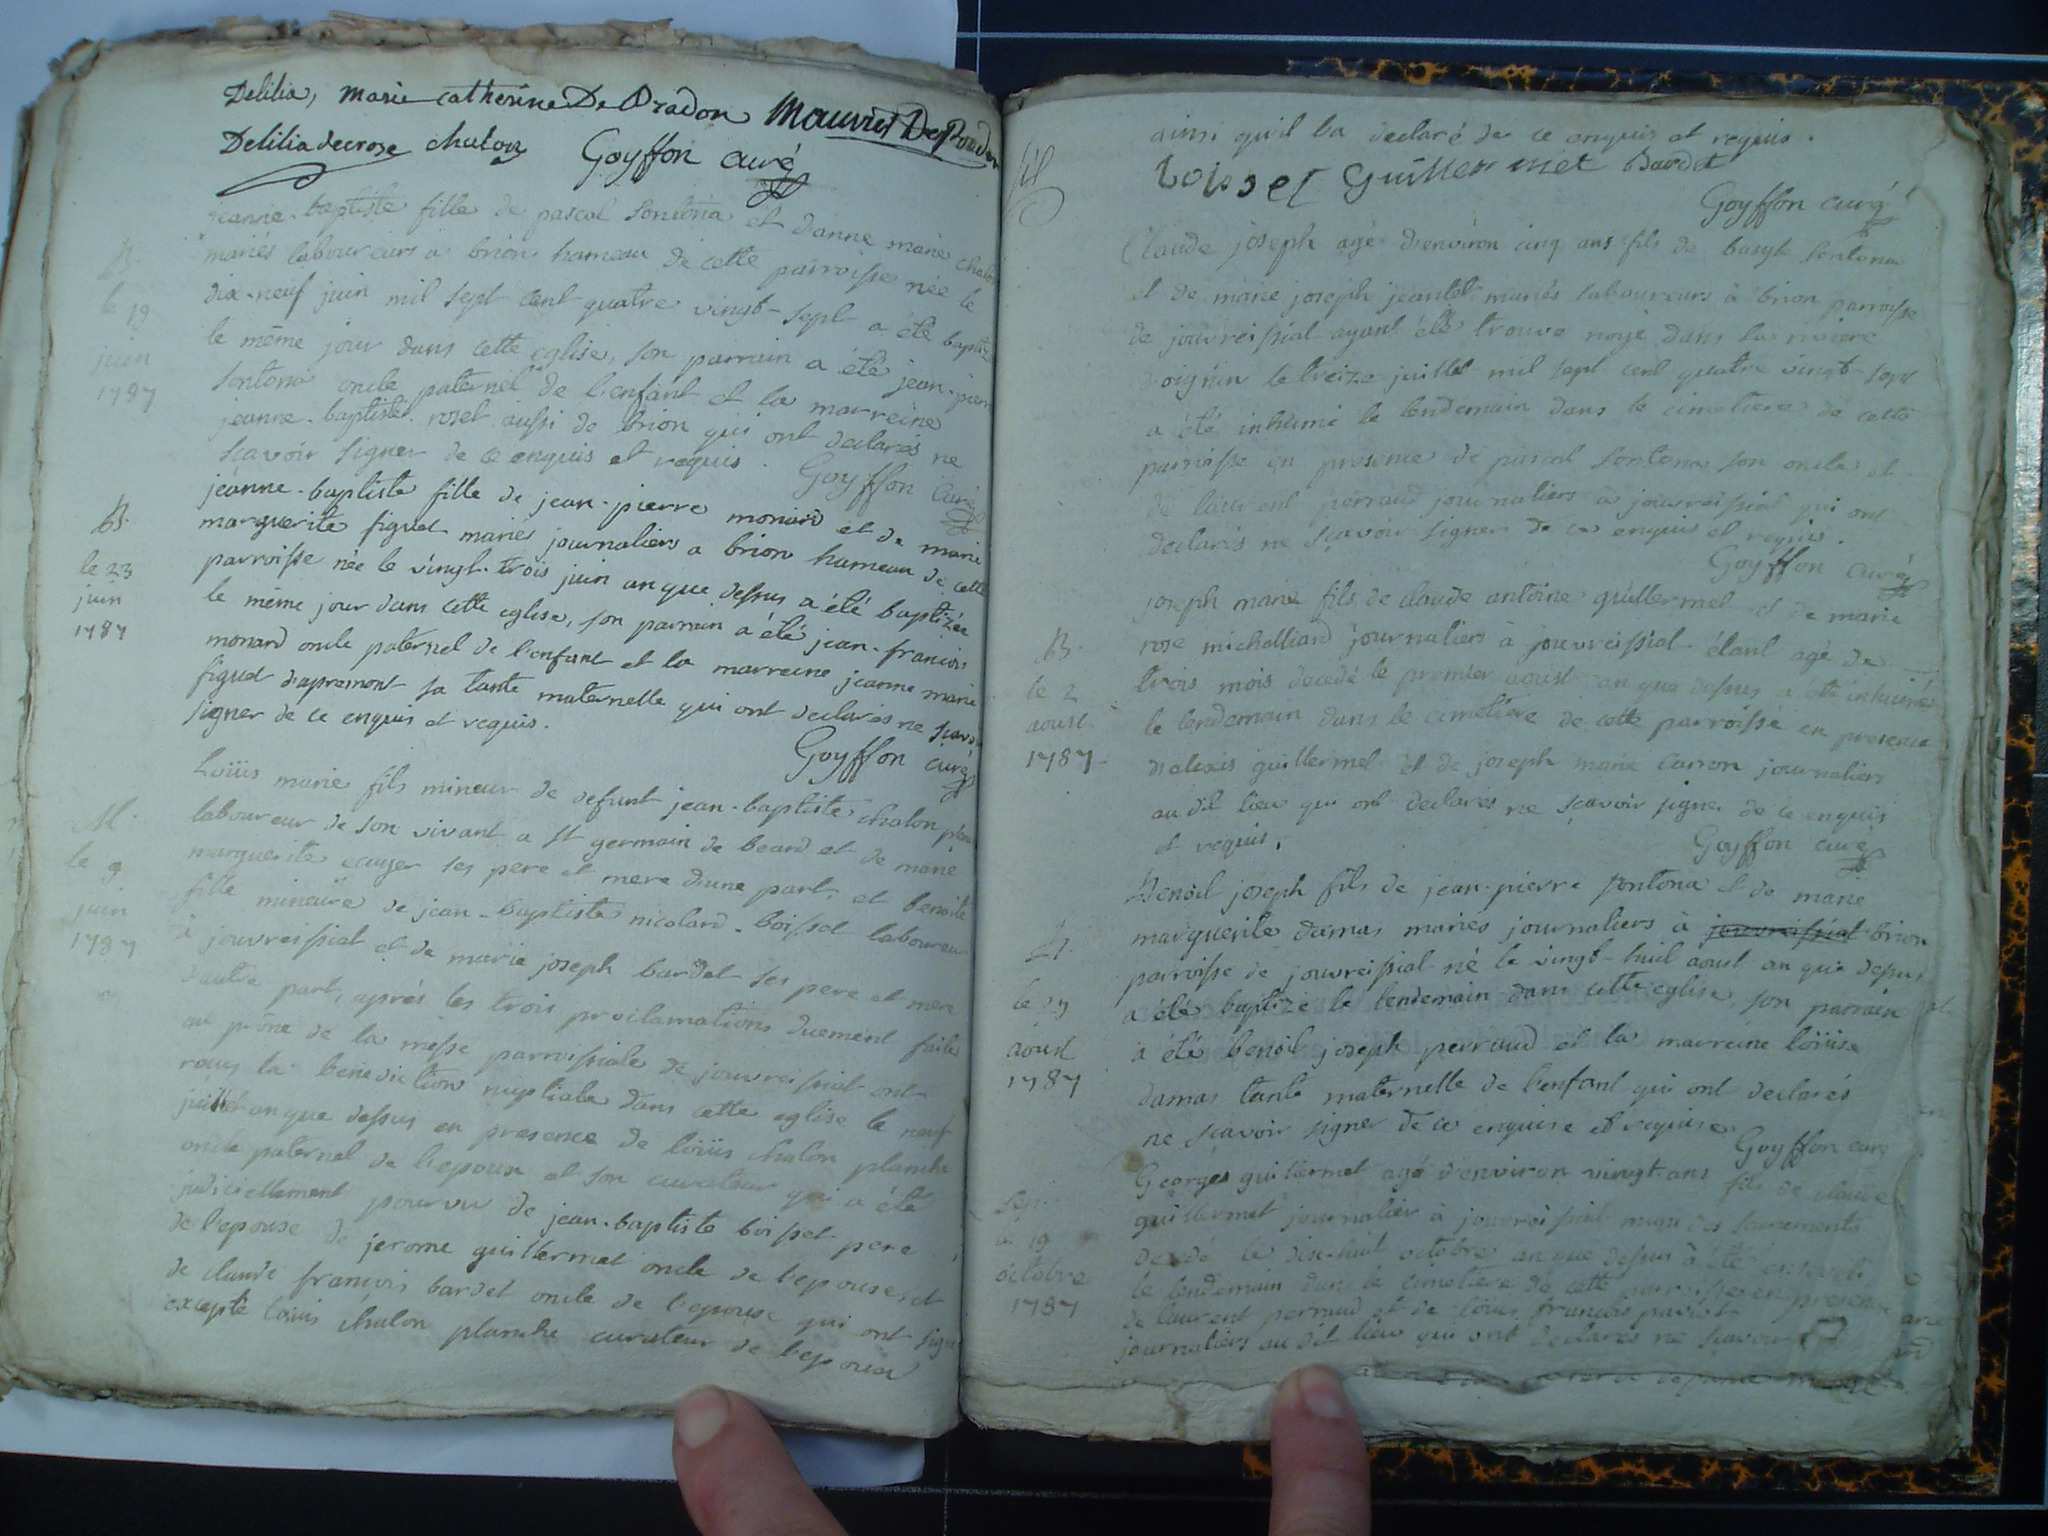 Delilia, marie catherine De Pradon mauvier
Delilia decrose chalon Goyffon curé
jeanne-baptiste fille de pascal sontona et danne marie chalon
mariés laboureurs a brion hameau de cette parroisse née le
B.
le 19
juin
1787
dix-neuf juin mil sept cent quatre vingt-sept a été baptizée
le même jour dans cette eglise, son parrain a été jean-pierre
sontona oncle paternel de l'enfant et la marreine
jeanne-baptiste rosel aussi de brion qui ont declarés ne
scavoir signer de ce enquis et requis. Goyffon curé
B.
le 23
juin
1787
jeanne-baptiste fille de jean-pierre monard et de marie
marguerite figuet mariés journaliers a brion hameau de cette
parroisse née le vingt-trois juin an que dessus a été baptizée
le même jour dans cette eglise, son parrain a été jean-francois
monard oncle paternel de l'enfant et la marreine jeanne marie
figuet d'apremont sa tante maternelle qui ont declarés ne scavoir
signer de ce enquis et requis.
Goyffon curé
M.
le 9
juin
1787
Loüis marie fils mineur de defunt jean-baptiste chalon
laboureur de son vivant a st germain de beard et de marie
marguerite ecuyer ses pere et mere d'une part, et benoite
fille mineure de jean-baptiste nicolard-boisset laboureur
à jouvreissiat et de marie joseph bardet ses pere et mere
d'autre part, aprés les trois proclamations duement faites
au prône de la messe parroissiale de jouvreissiat ont
reçus la benediction nuptiale dans cette eglise le neuf
juillet an que dessus en presence de loüis chalon planche
oncle paternel de l'epoux et son curateur qui a été
judiciellement pourvu de jean-baptiste boisset pere
de l'epouse de jerome guillermet oncle de l'epouse et
de claude françois bardet oncle de l'epouse qui ont signé
excepté loüis chalon planche curateur de l'epoux
ainsi qu'il l'a declaré de ce enquis et requis.
boisset guillermet bardet
Goyffon curé
Claude joseph agé d'environ cinq ans fils de basyle sontona
et de marie joseph jeantet mariés laboureurs à brion parroisse
de jouvreissiat ayant été trouvé noyé dans la riviere
d'oignin le treize juillet mil sept cent quatre vingt-sept
a été inhumé le lendemain dans le cimetiere de cette
parroisse en presence de pascal sontona son oncle et
de laurent perraud journaliers à jouvreissiat qui ont
declarés ne sçavoir signer de ce enquis et requis.
Goyffon curé
B.
le 2
aoust
1787
joseph marie fils de claude antoine guillermet et de marie
rose michalliard journaliers à jouvreissiat étant agé de
trois mois decedé le premier aoust an que dessus a été inhumé
le lendemain dans le cimetiere de cette parroisse en presence
d'alexis guillermet et de joseph marie carron journaliers
au dit lieu qui ont declarés ne sçavoir signer de ce enquis
et requis.
Goyffon curé
le 29
aoust
1787
Benoit joseph fils de jean-pierre sontona et de marie
marguerite damas mariés journaliers à jouvreissiat brion
parroisse de jouvreissiat né le vingt-huit aoust an que dessus
a été baptizé le lendemain dans cette eglise, son parrain
a été benoit joseph perraud et la marreine loüise
damas tante maternelle de l'enfant qui ont declarés
ne scavoir signer de ce enquis et requis.
Goyffon curé
Sep.
le 19
octobre
1787
Georges guillermet agé d'environ vingt-ans fils de claude
guillermet journalier à jouvreissiat muni des sacrements
decedé le dix-huit octobre an que dessus a été enseveli
le lendemain dans le cimetiere de cette parroisse en presence
de laurent perraud et de loüis françois
journaliers au dit lieu qui ont declarés ne scavoir